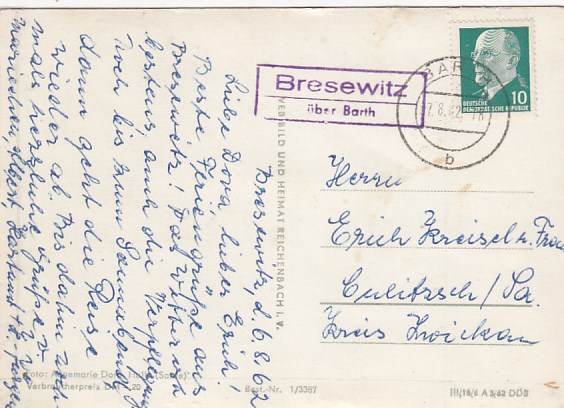 Bresewitz, d. 6.8.62
Liebe Dora, lieber Erich!
Beste Feriengrüße aus
Bresewitz! Das Wetter ist
bestens auch die Verpflegung
Noch bis zum Sonnabend,
dann geht die Reise
wieder ab. Bis dahin noch-
mals herzliche Grüße v.
Bresewitz
über Barth
BARTH
7.8.62
b
DEUTSCHE
DEMOKRATISCHE REPUBLIK
10
VEB BILD UND HEIMAT REICHENBACH I. V.
Herrn
Erich Kreisel u. Frau
Culitzsch/Sa.
Kreis Zwickau
Foto: Annemarie Halle (Saale)
Verbraucherpreis DM -,20
Best.-Nr. 1/3387
III/18/6 A 3/62 DDR